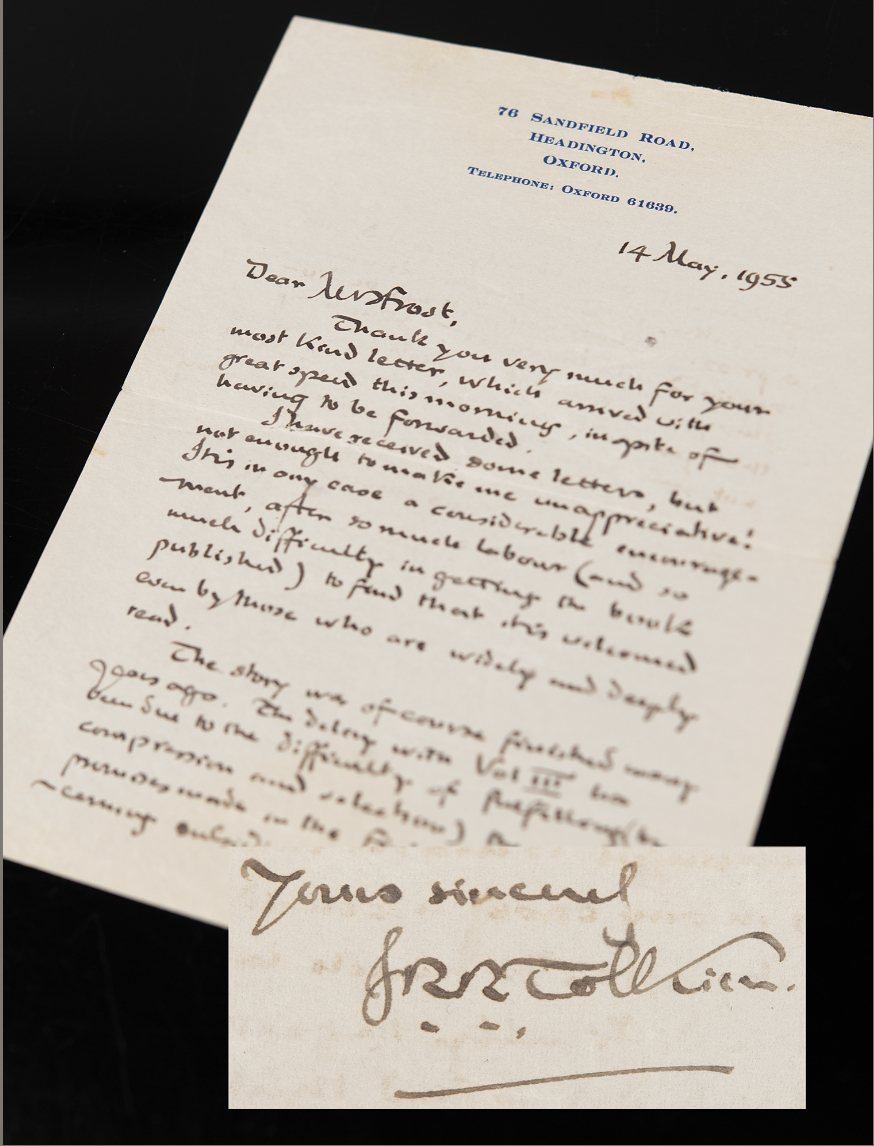 76 SANDFIELD ROAD,
HEADINGTON,
OXFORD.
TELEPHONE: OXFORD 61639.
14 May, 1955
Dear Mrs Frost,
Thank you very much for your
most kind letter, which arrived with
great speed this morning, in spite of
having to be forwarded.
I have received some letters, but
not enough to make me unappreciative!
It is in any case a considerable encourage-
ment, after so much labour (and so
much difficulty in getting the book
published) to find that it is welcomed
even by those who are widely and deeply
read.
The story was of course finished many
years ago. The delay with Vol III has
been due to the difficulty of fulfilling (by
compression and selection)
promises made in the
Yours sincerely
JRR Tolkien.